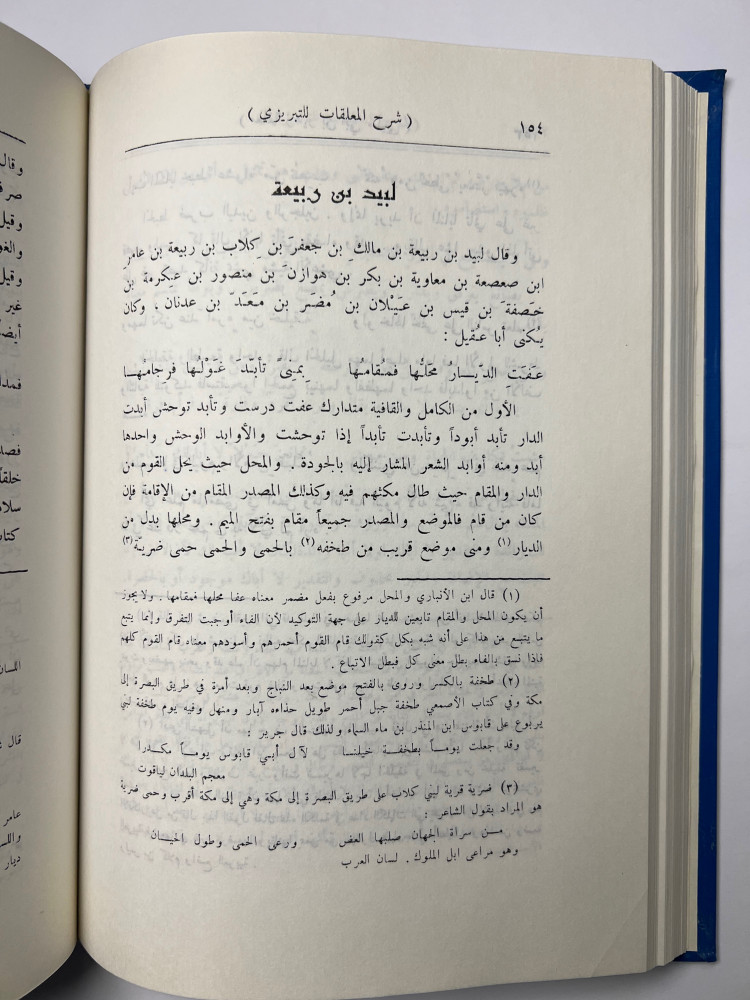 ( شرح المعلقات للتبريزي )
١٥٤
لبيد بن ربيعة
وقال لبيد بن ربيعة بن مالك بن جعفر بن كلاب بن ربيعة بن عامر
ابن صعصعة بن معاوية بن بكر بن هوازن بن منصور بن عكرمة بن
خصفة بن قيس بن عيلان بن مضر بن معد بن عدنان ، وكان
يكنى أبا عقيل :
عفت الديار محلها فمقامها بمنى تأبد غولها فرجامها
الأول من الكامل والقافية متدارك عفت درست وتأبد توحش أبدت
الدار تأبد أبوداً وتأبدت تأبداً إذا توحشت والأوابد الوحش واحدها
أبد ومنه أوابد الشعر المشار إليه بالجودة . والمحل حيث يحل القوم من
الدار والمقام حيث طال مكثهم فيه وكذلك المصدر المقام من الإقامة فإن
كان من قام فالموضع والمصدر جميعاً مقام بفتح الميم . ومحلها بدل من
الديار (١) ومنى موضع قريب من طخفه (٢) بالحمى والحمى حمى ضرية (٣)
(١) قال ابن الأنباري والمحل مرفوع بفعل مضمر معناه عفا محلها فمقامها . ولا يجوز
أن يكون المحل والمقام تابعين للديار على جهة التوكيد لأن الفاء أوجبت التفرق وإنما يتبع
ما يتبع من هذا على أنه شبه بكل كقولك قام القوم أحمرهم وأسودهم معناه قام القوم كلهم
فاذا نسق بالفاء بطل معنى كل فبطل الاتباع .
(٢) طخفة بالكسر وروى بالفتح موضع بعد النباج وبعد أمرة في طريق البصرة إلى
مكة وفي كتاب الأصمعي طخفة جبل أحمر طويل حذاءه آبار ومنهل وفيه يوم طخفة لبني
يربوع على قابوس ابن المنذر بن ماء السماء ولذلك قال جرير :
وقد جعلت يوماً بطخفة خيلنا لآل أبي قابوس يوماً مكدرا
معجم البلدان لياقوت
(٣) ضرية قرية لبني كلاب على طريق البصرة إلى مكة وهي إلى مكة أقرب وحمى ضرية
هو المراد بقول الشاعر :
من سراة الجهان صلبها العض ورعى الحمى وطول الحيان
وهو مراعى ابل الملوك . لسان العرب